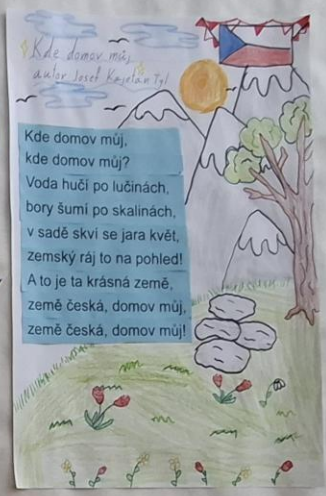 Kde domov můj,
autor Josef Kajetán Tyl
Kde domov můj,
kde domov můj?
Voda hučí po lučinách,
bory šumí po skalinách,
v sadě skví se jara květ,
zemský ráj to na pohled!
A to je ta krásná země,
země česká, domov můj,
země česká, domov můj!